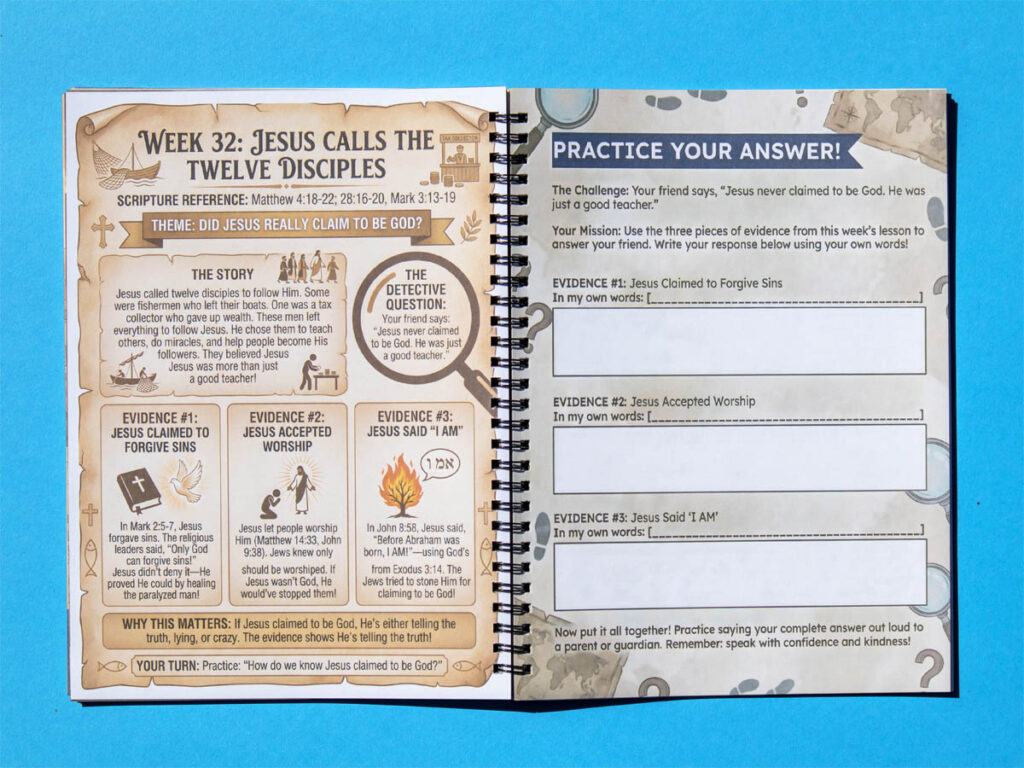 WEEK 32: JESUS CALLS THE
TWELVE DISCIPLES
TAX COLLECTOR
SCRIPTURE REFERENCE: Matthew 4:18-22; 28:16-20, Mark 3:13-19
THEME: DID JESUS REALLY CLAIM TO BE GOD?
THE STORY
Jesus called twelve disciples to follow Him. Some
were fishermen who left their boats. One was a tax
collector who gave up wealth. These men left
everything to follow Jesus. He chose them to teach
others, do miracles, and help people become His
followers. They believed Jesus
Jesus was more than just
a good teacher!
THE
DETECTIVE
QUESTION:
Your friend says:
“Jesus never claimed
to be God. He was just
a good teacher.”
EVIDENCE #1:
JESUS CLAIMED TO
FORGIVE SINS
In Mark 2:5-7, Jesus
forgave sins. The religious
leaders said, “Only God
can forgive sins!”
Jesus didn’t deny it—He
proved He could by healing
the paralyzed man!
EVIDENCE #2:
JESUS ACCEPTED
WORSHIP
Jesus let people worship
Him (Matthew 14:33, John
9:38). Jews knew only
should be worshiped. If
Jesus wasn’t God, He
would’ve stopped them!
EVIDENCE #3:
JESUS SAID “I AM”
אמ ו
In John 8:58, Jesus said,
“Before Abraham was
born, I AM!”—using God’s
from Exodus 3:14. The
Jews tried to stone Him for
claiming to be God!
WHY THIS MATTERS: If Jesus claimed to be God, He’s either telling the
truth, lying, or crazy. The evidence shows He’s telling the truth!
YOUR TURN: Practice: “How do we know Jesus claimed to be God?”
PRACTICE YOUR ANSWER!
The Challenge: Your friend says, “Jesus never claimed to be God. He was
just a good teacher.”
Your Mission: Use the three pieces of evidence from this week’s lesson to
answer your friend. Write your response below using your own words!
EVIDENCE #1: Jesus Claimed to Forgive Sins
In my own words: [___]
EVIDENCE #2: Jesus Accepted Worship
In my own words: [___]
EVIDENCE #3: Jesus Said ‘I AM’
In my own words: [___]
Now put it all together! Practice saying your complete answer out loud to
a parent or guardian. Remember: speak with confidence and kindness!